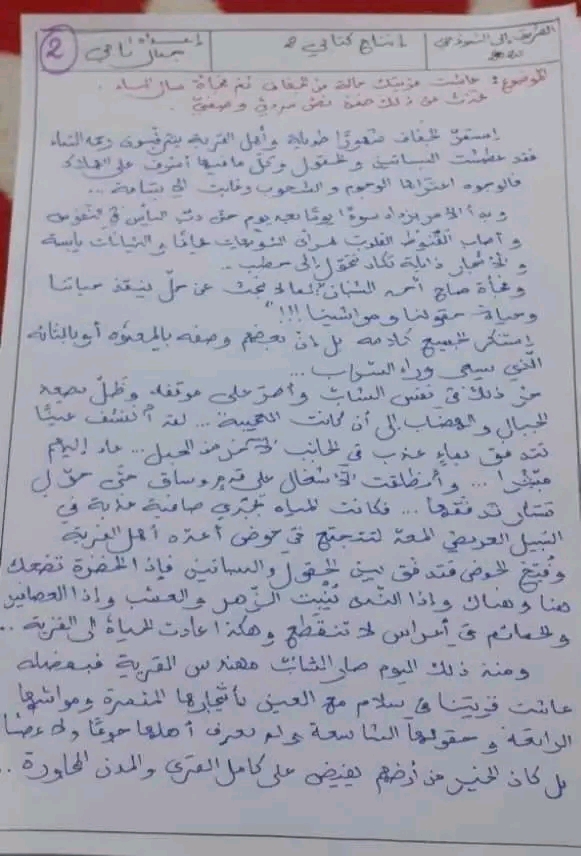 الطريق إلى النموذجي
إنتاج كتابي 2
جمال نامي
2
الموضوع: عاشت قريتك حالة من الجفاف ثم فجأة سال الماء.
تحدث عن ذلك ضمن نص سردي وصفي.
استمرّ الجفاف شهورًا طويلة وأهل القرية يترقبون رحمة السماء
فقد عطشت البساتين والحقول وكلّ ما فيها أشرف على الهلاك
فالوجوه اعتراها الوجوم والشحوب وغابت الابتسامة ...
وبدأ الأمر يزداد سوءًا يومًا بعد يوم حتى دبّ اليأس في النفوس
وأصاب القنوط القلوب فمرأى السويعات عامًا والنباتات يابسة
والأشجار ذابلة تكاد تتحوّل إلى حطب ..
وفجأة صاح أحد الشبان "تعالوا نبحث عن حلّ ينقذ حياتنا
وحياة حقولنا ومواشينا!!!"
إستنكر الجميع كلامه بل إنّ بعضهم وصفه بالمعتوه أو بالتائه
الّذي يسعى وراء السراب ...
حزّ ذلك في نفس الشاب وأصرّ على موقفه وظلّ يصعد
الجبال والهضاب إلى أن كانت العجيبة ... لقد اكتشف عينًا
تتدفق بماء عذب في الجانب الآخر من الجبل ... عاد إليهم
مبشّرا ... وانطلقت الأشغال على قدم وساق حتّى حوّل
تدفقها ... فكانت المياه تجري صافية عذبة في
السّبيل العريض المعدّ لتتجمّع في حوض أعدّه أهل القرية
وفُتِح الحوض فتدفق بين الحقول والبساتين فإذا الخضرة تضحك
هنا وهناك وإذا الثرى يُنْبِت الزّهر والعشب وإذا العصافير
والحمائم في أعراس لا تنقطع وهكذا عادت الحياة إلى القرية ..
ومنذ ذلك اليوم صار الشابّ مهندس القرية فبفضله
عاشت قريتنا في سلام مع العين بأشجارها المثمرة ومواشيها
الرائعة وحقولها الشاسعة ولم يعرف أهلها جوعًا ولا عطشا
بل كان الخير من أرضهم يفيض على كامل القرى والمدن المجاورة ..